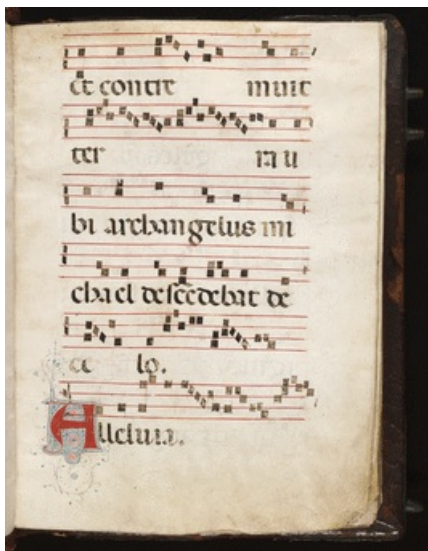 et contre muit
ter ra u
bi archangelus mi
chael descēdebat de
ce lo.
Alleluia.